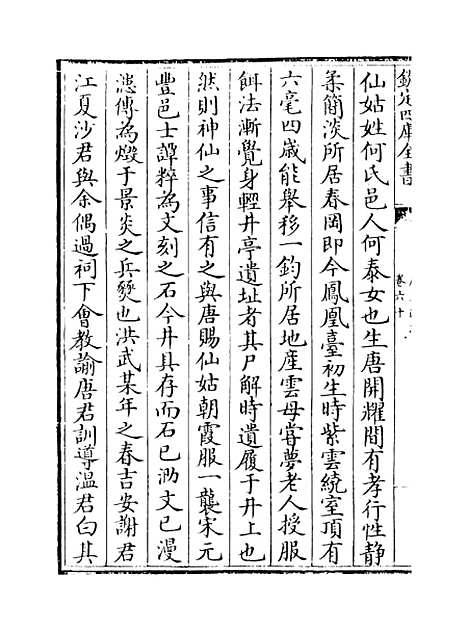 欽定四庫全書
卷六十
仙姑姓何氏邑人何泰女也生唐開耀間有孝行性静
柔簡淡所居春岡即今鳳凰臺初生時紫雲繞室頂有
六毫四歲能舉移一鈞所居地産雲母嘗夢老人授服
餌法漸覺身輕井亭遺址者其尸解時遺履于井上也
然則神仙之事信有之與唐賜仙姑朝霞服一襲宋元
豐邑士譚粹為文刻之石今井具存而石已泐文已漫
漶傳為燬于景炎之兵燹也洪武某年之春吉安謝君
江夏沙君與余偶過祠下會教諭唐君訓導温君白其